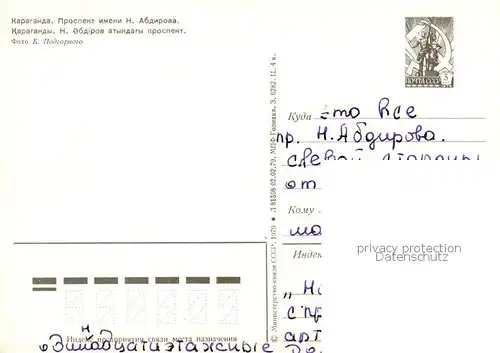 Караганда. Проспект имени Н. Абдирова.
Қарағанды. Н. Әбдіров атындағы проспект.
Фото Б. Подгорного
ПОЧТА СССР
Куда Это все
пр. Н.Абдирова.
с левой стороны
от
Кому
Индекс
privacy protection
Datenschutz
© Министерство связи СССР. 1979 ● Л 81558 02.02.79. МПФ Гознака. З. 6282. Ц. 4 к.
Индекс предприятия связи места назначения